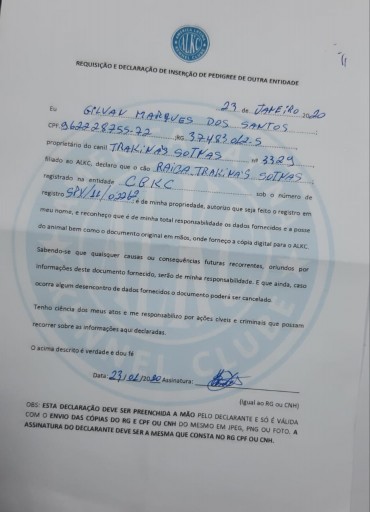 ALKC
REQUISIÇÃO E DECLARAÇÃO DE INSERÇÃO DE PEDIGREE DE OUTRA ENTIDADE
23 de JANEIRO 2020
Eu GILVAN MARQUES DOS SANTOS
CPF 962228755-72 ;RG 37.483.012-5
proprietário do canil TRAKINAS SOTNAS nº 3329
filiado ao ALKC, declara que o cão RAIBA TRAKINA'S SOTNAS
registrado na entidade CBKC sob o número de
registro é de minha propriedade, autorizo que seja feito o registro em
meu nome, e reconheço que é de minha total responsabilidade os dados fornecidos e a posse
do animal bem como o documento original em mãos, onde forneço a cópia digital para o ALKC.
Sabendo-se que quaisquer causas ou consequências futuras recorrentes, oriundos por
informações deste documento fornecido, serão de minha responsabilidade. E que ainda, caso
ocorra algum desencontro de dados fornecidos o documento poderá ser cancelado.
Tenho ciência dos meus atos e me responsabilizo por ações cíveis e criminais que possam
recorrer sobre as informações aqui declaradas.
O acima descrito é verdade e dou fé
Data: 23/01/2020 Assinatura:
(Igual ao RG ou CNH)
OBS: ESTA DECLARAÇÃO DEVE SER PREENCHIDA A MÃO PELO DECLARANTE E SÓ É VÁLIDA
COM O ENVIO DAS CÓPIAS DO RG E CPF OU CNH DO MESMO EM JPEG, PNG OU FOTO. A
ASSINATURA DO DECLARANTE DEVE SER A MESMA QUE CONSTA NO RG CPF OU CNH.